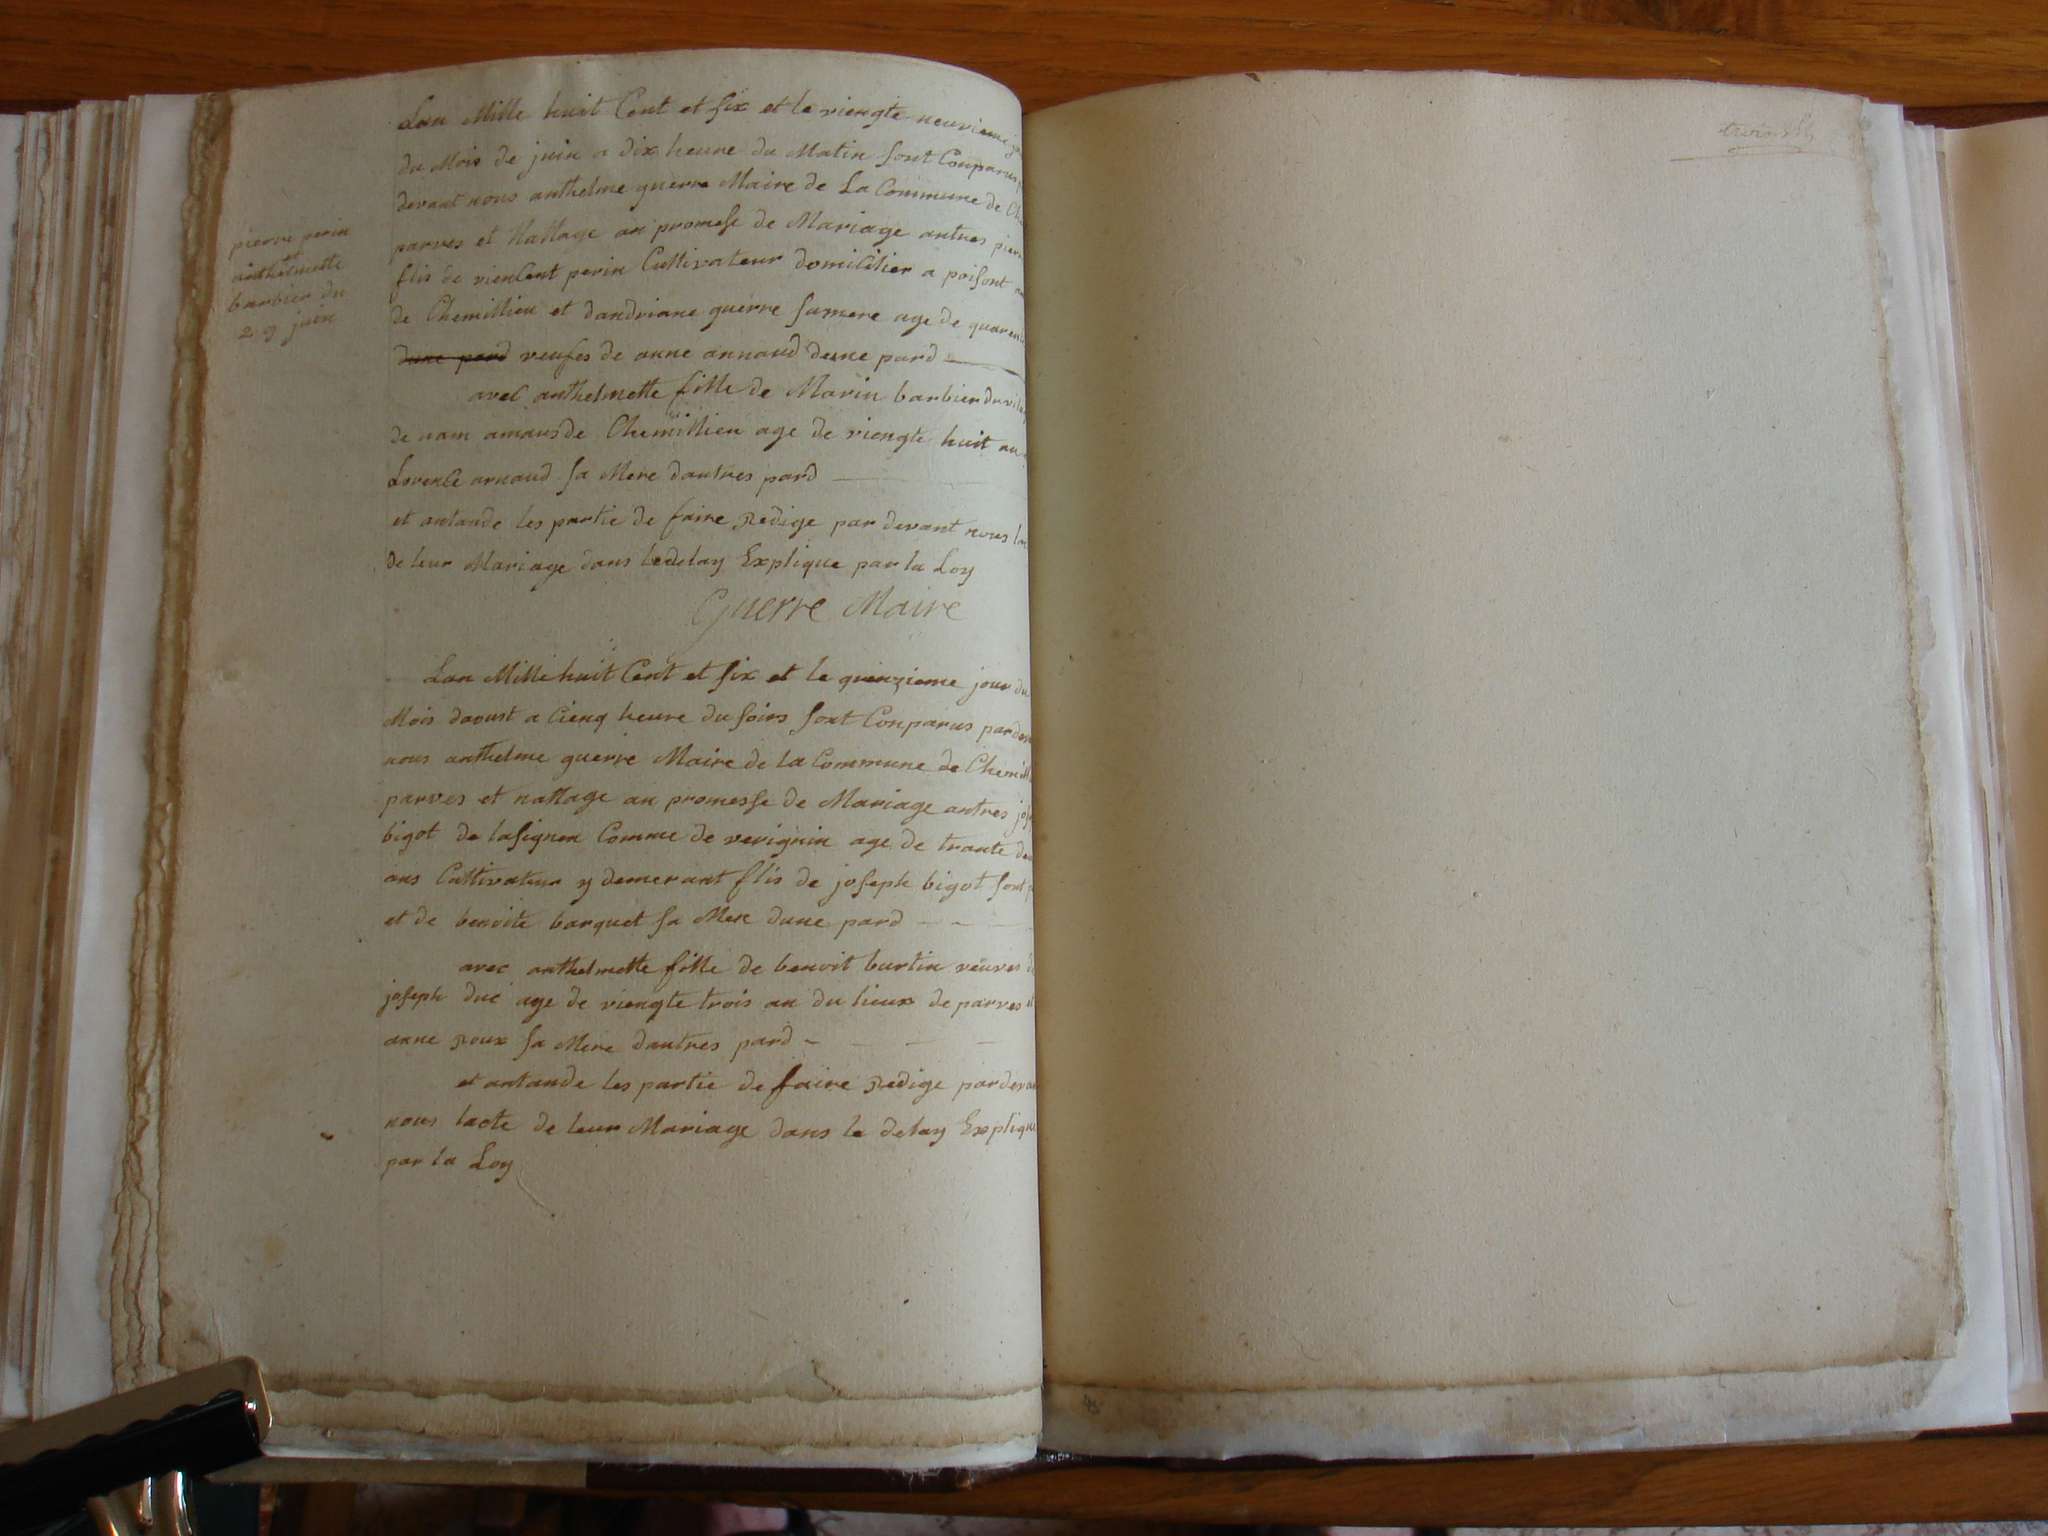 Lan Mille huit Cent et six et le viengte neuvieme
du Mois de juin a dix heure du Matin sont Conparus
devant nous anthelme guerre Maire de La Commune de
parves et Nattage an promese de Mariage antres
flis de vienCent perin Cultivateur domicilier a poisont
de Chemillieu et dandriane guerre samere age de
dune pard veufes de anne annaud deune pard
avec anthelmette fille de Marin barbier
de nam amaus de Chemillieu age de viengte huit an
arnaud sa Mere dautres pard
et antande les partie de faire Redige par devant nous
de leur Mariage dans le delay Explique par la Loy
Guerre Maire
pierre perin
et
anthelmette
barbier du
29 juin
Lan Mille huit Cent et six et le quienzieme jour du
Mois doust a Cienq heure du soirs sont Conparus
nous anthelme guerre Maire de la Commune de
parves et nattage an promesse de Mariage antres
bigot de lasignen Comme de verignin age de trante
ans Cultivateur y demerant flis de joseph bigot sont
et de benoite barquet sa Mere dune pard
avec anthelmette fille de benoit burtin veuves
joseph duc age de viengte trois an du lieux de parves et
anne Roux sa Mere dautres pard
et antande les partie de faire Redige
nous lacte de leur Mariage dans le delay Explique
par la Loy